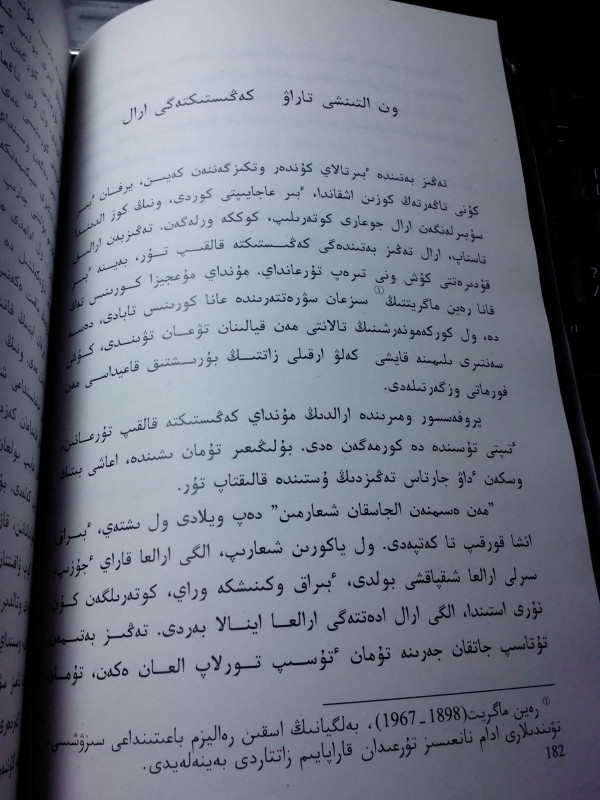 ون التىنشى تاراۋ كەڭىستىكتەگى ارال
تەڭىز بەتىندە ٴبىرتالاي كۇندەر وتكىزگەننەن كەيىن، يرفان ٴبىر
كۇنى تاڭەرتەڭ كوزىن اشقاندا، ٴبىر عاجايىپتى كوردى، ونىڭ كوز الدىندا
سۇيىرلەنگەن ارال جوعارى كوتەرىلىپ، كوككە ورلەگەن. تەڭىزبەن ارالىق
تاستاپ، ارال تەڭىز بەتىندەگى كەڭىستىكتە قالقىپ تۇر، بەينە ٴبىر
قۇدىرەتتى كۇش ونى تىرەپ تۇرعانداي. مۇنداي مۇعجيزا كورىنىس تەك
قانا رەين ماگريتتىڭ① سىزعان سۋرەتتەرىندە عانا كورىنىس تابادى، دەسە
دە، ول كوركەمونەرشىنىڭ تالانتى مەن قيالىنان تۋعان تۋىندى، كۇش
سەنترى ىلىمىنە قايشى كەلۋ ارقىلى زاتتىڭ بۇرىشتىق قاعيداسى مەن
فورماتى وزگەرتىلەدى.
پروفەسسور ومىرىندە ارالدىڭ مۇنداي كەڭىستىكتە قالقىپ تۇرعانىن،
ٴتىپتى تۇسىندە دە كورمەگەن ەدى. بۇلىڭعىر تۇمان ىشىندە، اعاشى بىتىك
وسكەن ٴداۋ جارتاس تەڭىزدىڭ ۇستىندە قالىقتاپ تۇر.
”مەن ەسىمنەن الجاسقان شىعارمىن“ دەپ ويلادى ول ىشتەي، ٴبىراق
انشا قورقىپ تا كەتپەدى. ول ياكورىن شىعارىپ، الگى ارالعا قاراي ٴجۇزىپ،
سىرلى ارالعا شىقپاقشى بولدى، ٴبىراق وكىنىشكە وراي، كوتەرىلگەن كۇن
نۇرى استىندا، الگى ارال ادەتتەگى ارالعا اينالا بەردى. تەڭىز بەتىمەن
تۇتاسىپ جاتقان جەرىنە تۇمان ٴتۇسىپ تورلاپ العان ەكەن، تۇمان
① رەين ماگريت(1898-1967)، بەلگيانىڭ اسقىن رەاليزم باعىتىنداعى سىزۋشىسى،
تۋىندىلارى ادام نانعىسىز تۇرعىدان قاراپايىم زاتتاردى بەينەلەيدى.
182